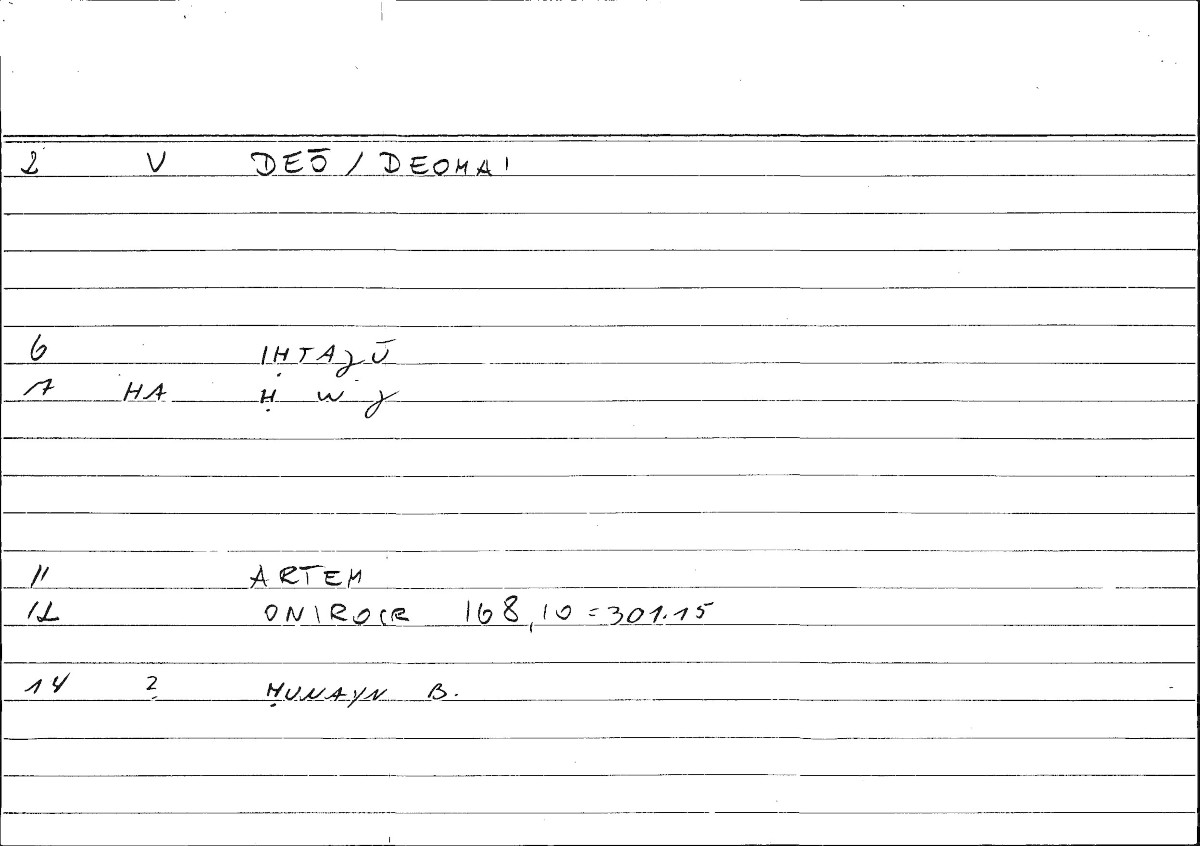 2 V DEŌ / DEOMAI
6 IḤTAJŪ
7 HA Ḥ W J
11 ARTEM
12 ONIROCR 168,10 = 301.15
14 2 ḤUNAYN B.